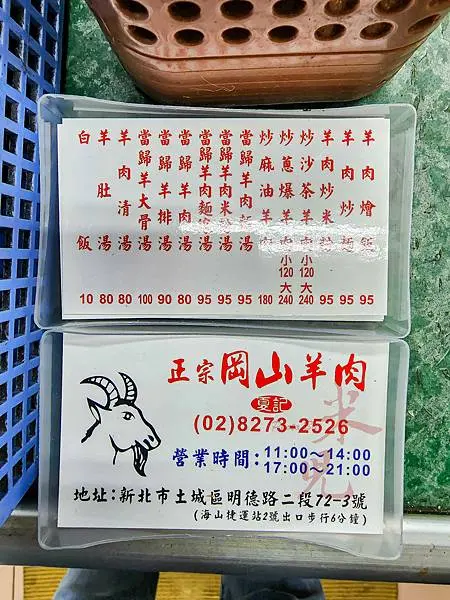 羊肉燴飯 95
羊肉炒麵 95
羊肉炒米粉 95
炒沙茶羊肉 小120 大240
炒蔥爆羊肉 小120 大240
炒麻油羊肉 180
當歸羊肉 湯 95
當歸羊肉米 湯 95
當歸羊肉麵 湯 95
當歸羊肉湯 80
當歸羊排湯 90
當歸羊大骨湯 100
羊肉清湯 80
羊肚湯 80
白飯 10
正宗岡山羊肉
夏記
(02)8273-2526
營業時間:11:00~14:00
17:00~21:00
地址:新北市土城區明德路二段72-3號
(海山捷運站2號出口步行6分鐘)
米兒